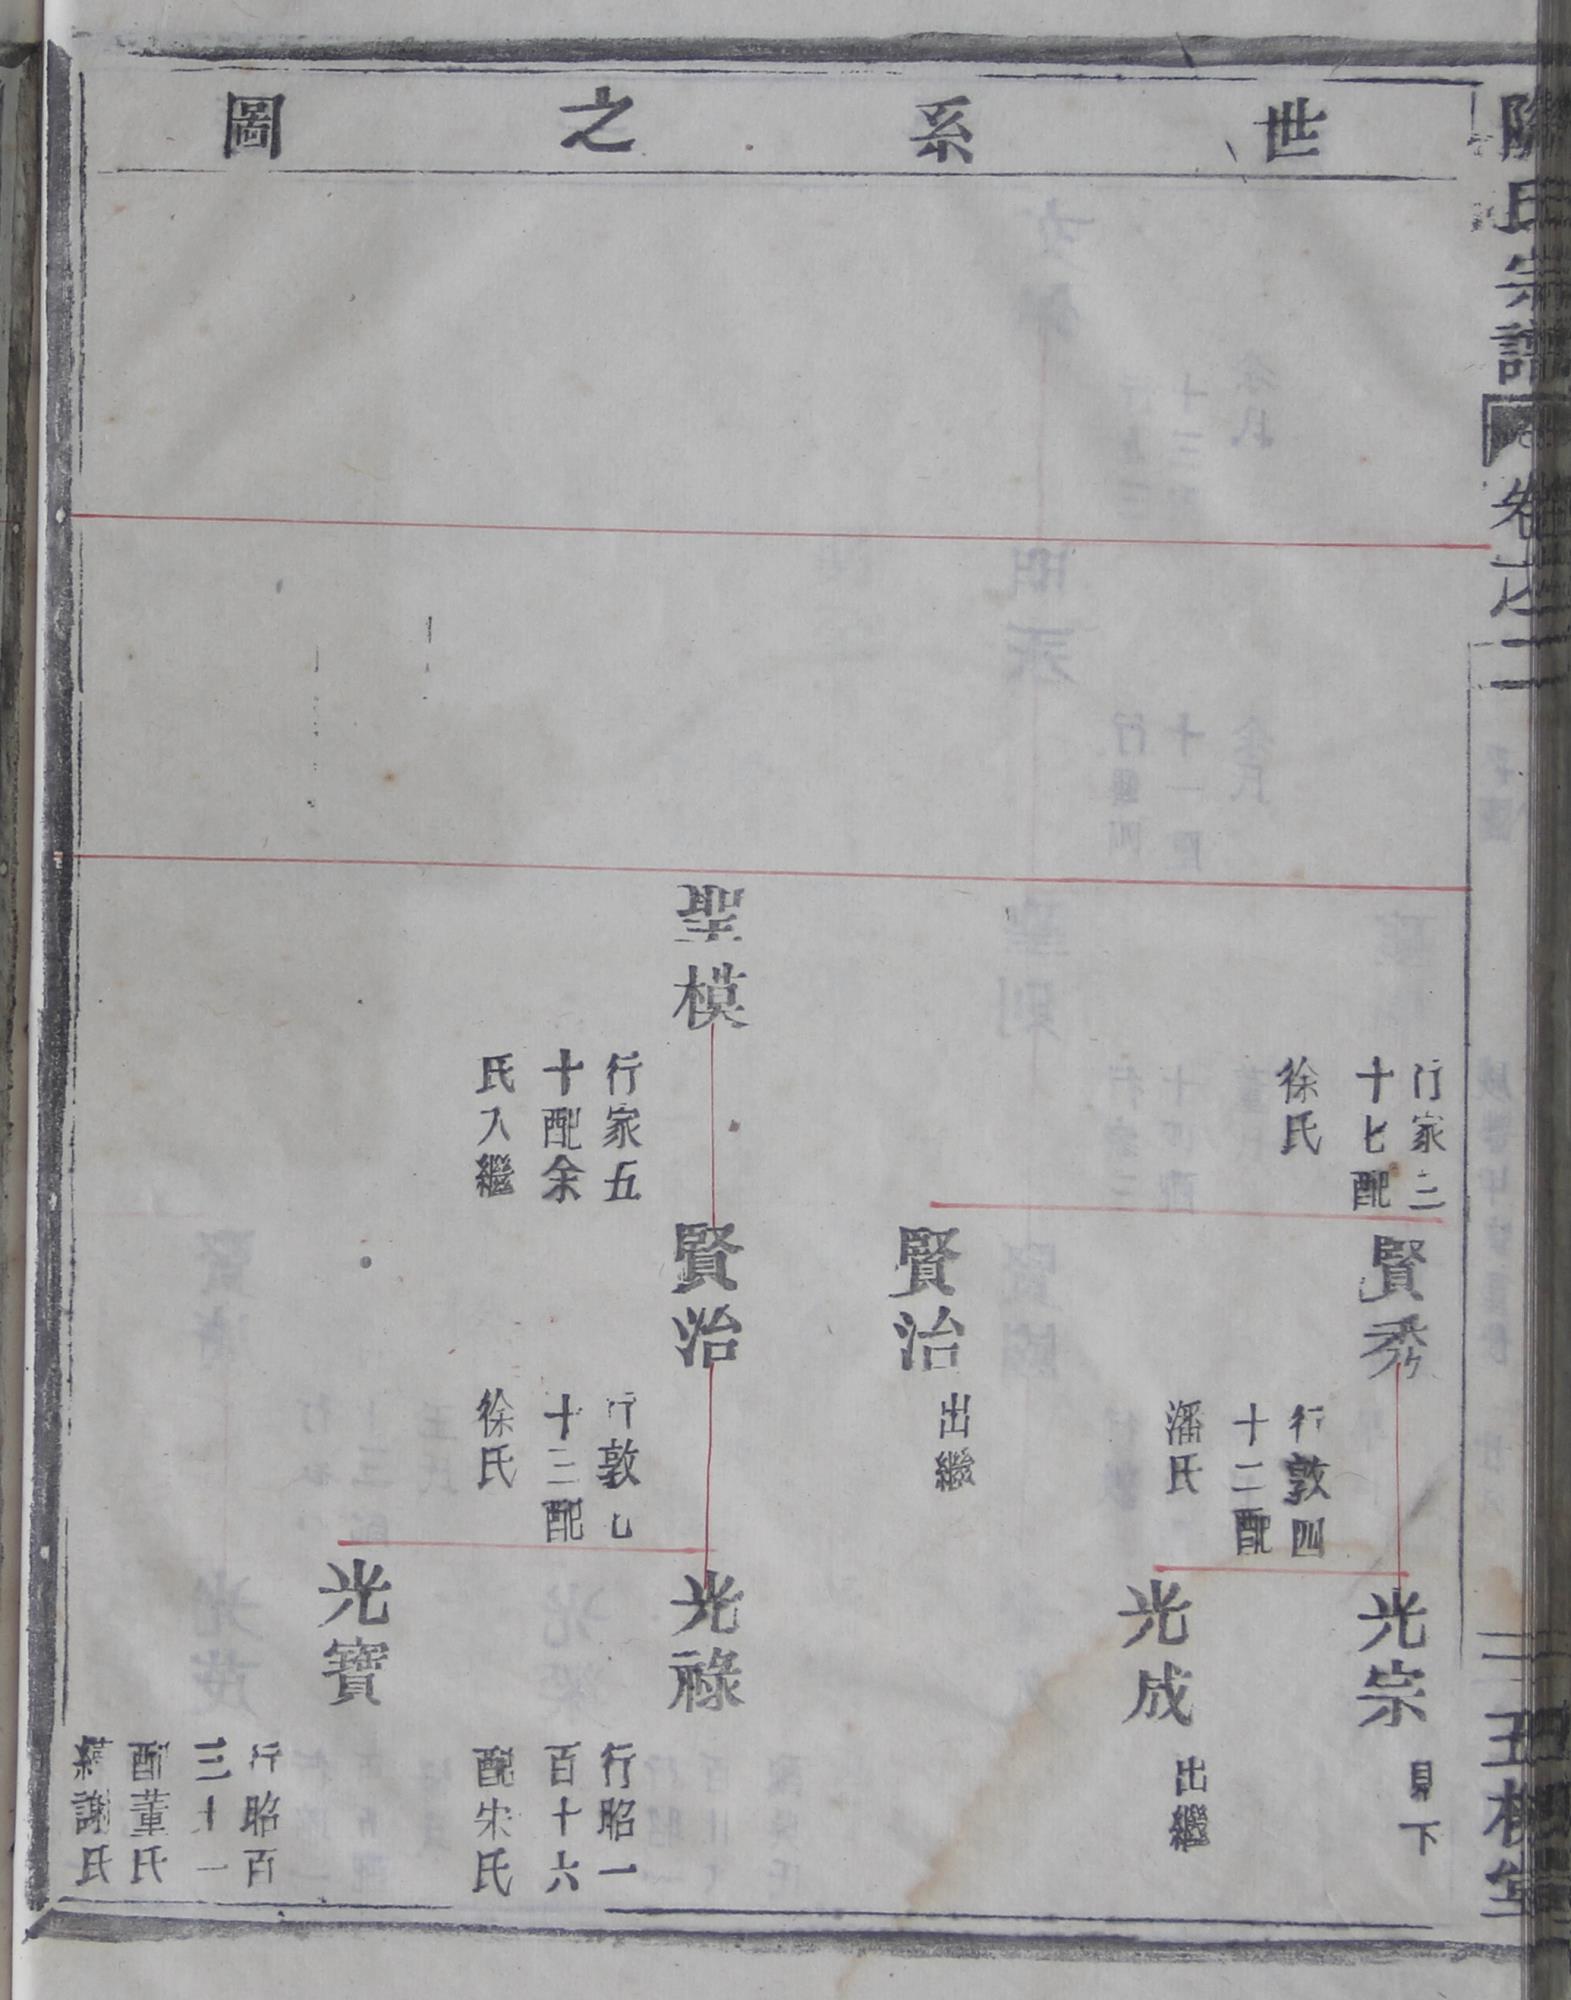 世系之圖
氏宗譜
卷之二
行家三
十七配
徐氏
賢秀
行敦四
十二配
潘氏
光宗
見下
光成
出繼
賢治
出繼
聖模
行家五
十配余
氏入繼
賢治
行敦七
十三配
徐氏
光祿
行昭一
百十六
配宋氏
光寶
行昭百
三十一
配董氏
繼謝氏